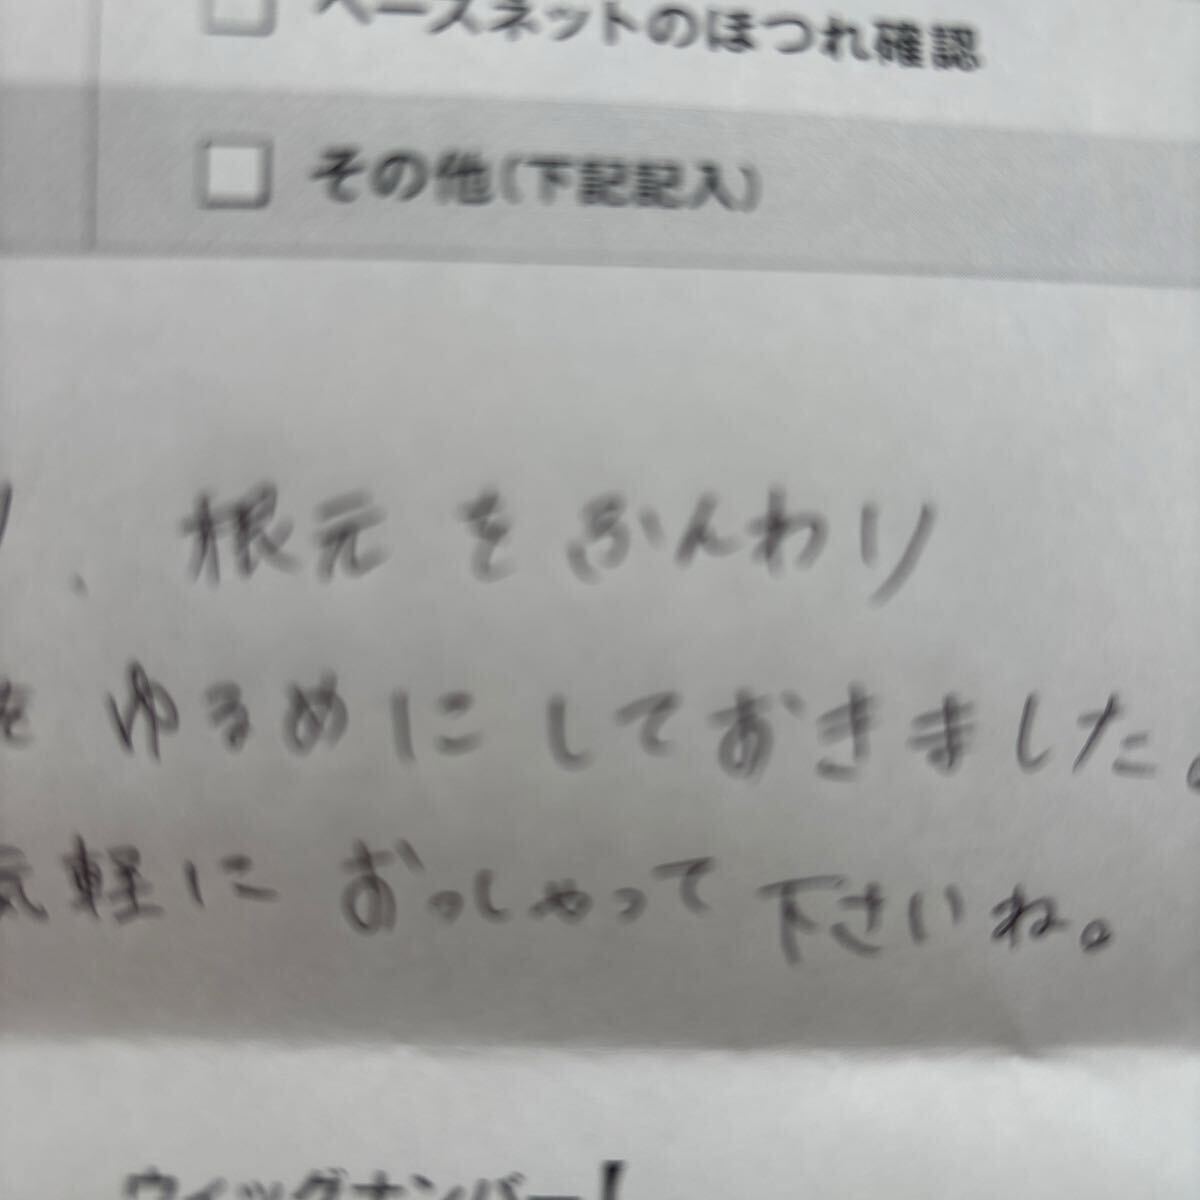 ベースネットのほつれ確認
その他(下記記入)
、根元をふんわり
をゆるめにしておきました。
気軽におっしゃって下さいね。
ウィッグナンバー【